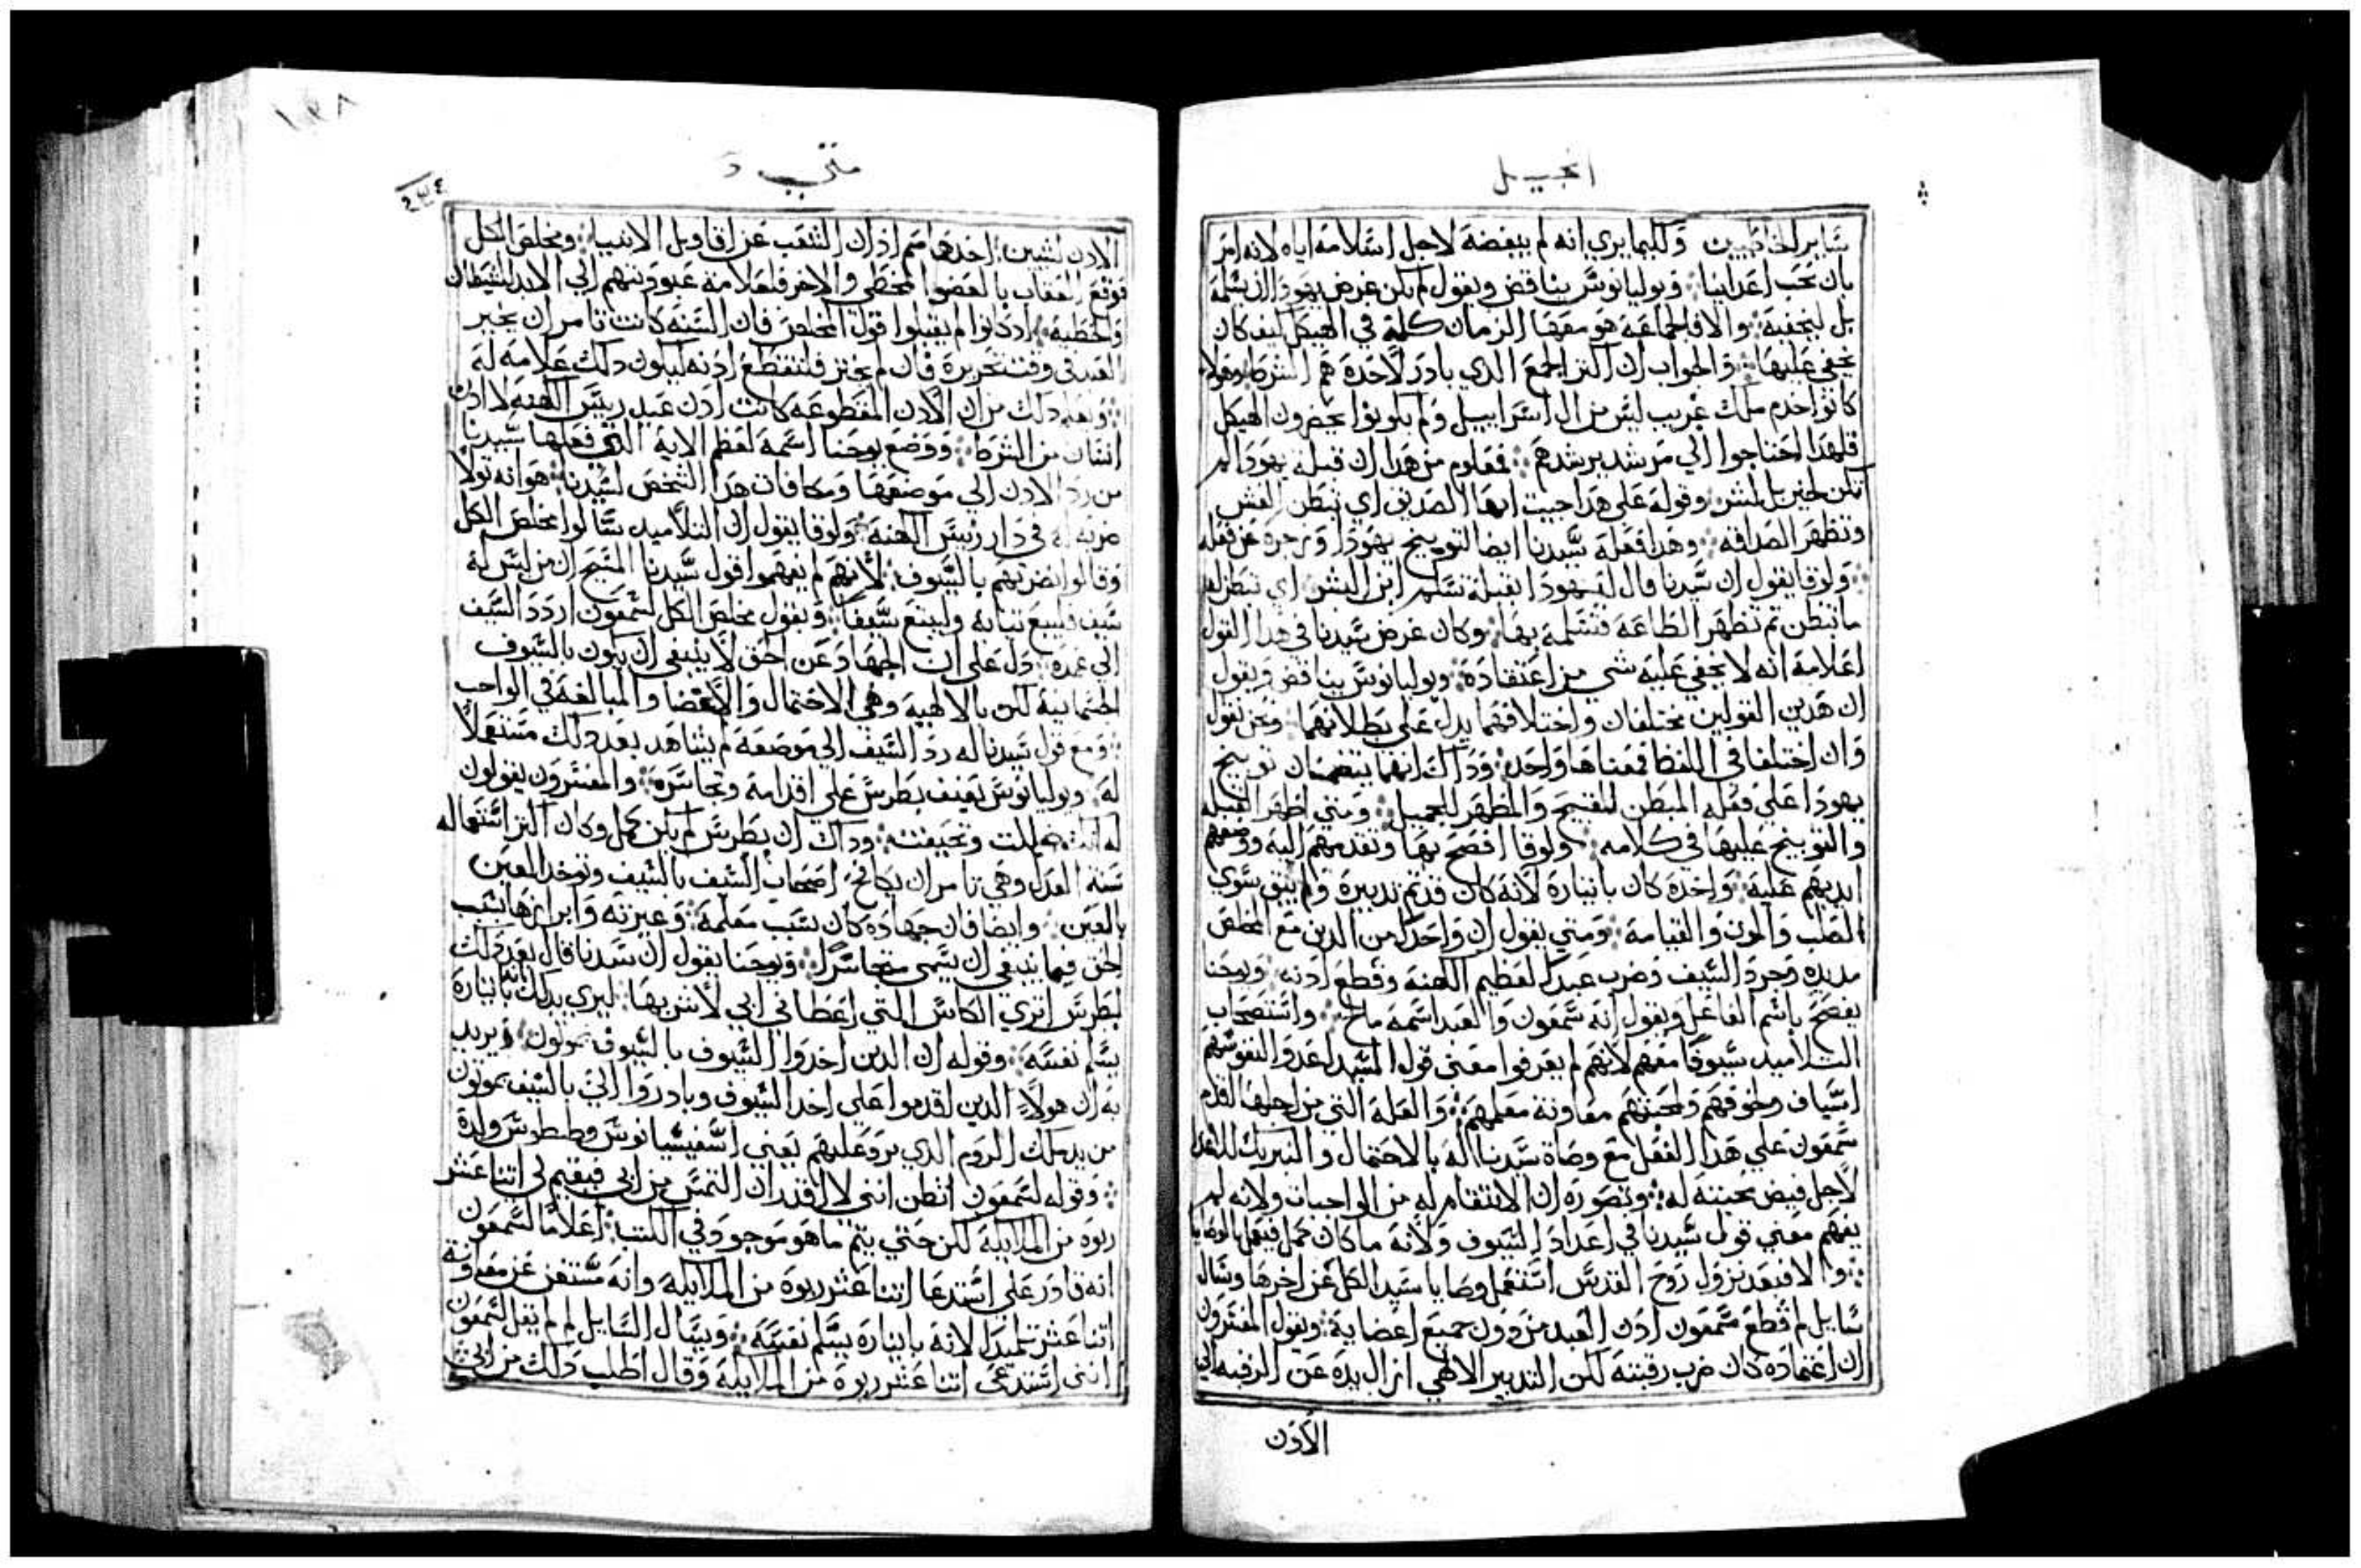 انجيل
ساير الخاطيين وكيما يري انه لم يبغضه لاجل استلامه اياه لانه امر
بان نحب اعداينا ويوليانوس يناقض ويقول لم يكن غرض يهودا ان يسلمه
بل ليخفيه والا فالجماعه هو معها الزمان كله في الهيكل كيف كان
يخفي عليها والجواب ان اكثر الجمع الدي بادر لاخده هم الشرط وهولا
كانوا خدم ملك غريب ليس من ال اسراييل ولم يكونوا يحضرون الهيكل
فلهدا احتاجوا الي مرشد يرشدهم فمعلوم من هدا ان قبلة يهودا لم
تكن لخير بل لشر وقوله علي هدا جيت ايها الصديق اي تبطن الغش
وتظهر الصداقه وهدا فعله سيدنا ايضا لتوبيخ يهودا وزجره عن فعله
ولوقا يقول ان سيدنا قال له يهودا ابقبلة تسلم ابن البشر اي تبطن لي
ما تبطن ثم تظهر الطاعه فتسلمه بها وكان غرض سيدنا في هدا القول
اعلامه انه لا يخفي عليه شي من اعتقاده ويوليانوس يناقض ويقول
ان هدين القولين مختلفان واختلافهما يدل علي بطلانهما ونحن نقول
وان اختلفا في اللفظ فمعناهما واحد وداك انهما يتضمنان توبيخ
يهودا علي فعله المبطن للقبيح والمظهر للجميل ومتي اظهر القبله
والتوبيخ عليها في كلامه ولوقا افصح بها وتقدمهم اليه ووضعهم
ايديهم عليه واخده كان بايتاره لانه كان قد تم تدبيره ولم يبق سوي
الصلب والموت والقيامه ومتي يقول ان واحدا من الدين مع المخلص
مد يده وجرد السيف وضرب عبدا لعظيم الكهنه وقطع ادنه ويوحنا
يفصح باسم الفاعل ويقول انه شمعون والعبد اسمه ماخ واستصحاب
التلاميد سيوفا معهم لانهم لم يعرفوا معني قول السيد اعدوا لنفوسكم
اسياف ولخوفهم ولمحبتهم معاونة معلمهم والعله التي من اجلها اقدم
شمعون علي هدا الفعل مع وصاة سيدنا له بالاحتمال والتبريك للاعدا
لاجل فيض محبته له وتصوره ان الانتقام له من الواجبات ولانه لم
يفهم معني قول سيدنا في اعداد السيوف ولانه ما كان كمل فيعمل بالوصايا
والا فبعد نزول روح القدس استعمل وصايا سيد الكل عن اخرها وسال
سايل لم قطع شمعون ادن العبد من دون جميع اعضايه ويقول المفسرون
ان اعتماده كان ضرب رقبته لكن التدبير الالهي ازال يده عن الرقبه الي
الأدن
١٣٨
متي د
٢٣٤
الادن لشيين احدها صمم ادان الشعب عن اقاويل الانبيا ومخلص الكل
فوقع العقاب بالعضو المخطي والاخر فلعلامة عبوديتهم الي الابد للشيطان
والخطيه اد كانوا لم يقبلوا قول المخلص فان السنه كانت تامر ان يخير
العبد في وقت تحريره فان لم يختر فلتقطع ادنه ليكون دلك علامه له
دلك من ان الادن المقطوعه كانت ادن عبد رييس الكهنه لا ادن
انسان من الشرط ووضع يوحنا اسمه لعظم الايه التي فعلها سيدنا
من رد الادن الي موضعها ومكافات هدا الشخص لسيدنا هو انه تولا
ضربه له في دار رييس الكهنه ولوقا يقول ان التلاميد سالوا مخلص الكل
وقالوا نضربهم بالسيوف لانهم لم يفهموا قول سيدنا المسيح ان من ليس له
سيف فليبع تيابه وليبتع سيفا ويقول مخلص الكل لشمعون اردد السيف
الي غمده دل علي ان الجهاد عن الحق لا ينبغي ان يكون بالسيوف
الجسمانية لكن بالالهيه وهي الاحتمال والاغضا والمبالغه في الواجب
ومع قول سيدنا له رد السيف الي موضعه لم يشاهد بعد دلك مستعملا
له ويوليانوس يعنف بطرس علي اقدامه وتجاسره والمفسرون يقولون
وداك ان بطرس لم يكن كمل وكان اكثر استعماله
سنة العدل وهي تامر ان يكافح اصحاب السيف بالسيف وتوخد العين
بالعين وايضا فان جهاده كان بسبب معلمه وغيرته وابرازها بسبب
الحق فما ينبغي ان يسمي متجاسرا ويوحنا يقول ان سيدنا قال بعد دلك
لبطرس اتري الكاس التي اعطاني ابي لا اشربها ليري بدلك انه بايتاره
يسلم نفسه وقوله ان الدين اخدوا السيوف بالسيوف يموتون ويريد
به ان هولاء الدين اقدموا علي اخد السيوف وبادروا الي بالسيف يموتون
من يد ملك الروم الدي يرد عليهم يعني اسفسيانوس وططوس ولده
وقوله لشمعون اتظن انني لا اقدر ان التمس من ابي فيقيم لي اتنا عشر
ربوه من الملايكه لكن حتي يتم ما هو موجود في الكتب اعلاما لشمعون
انه قادر علي استدعا اتنا عشر ربوه من الملايكه وانه مستغن عن معاونة
اتنا عشر تلميدا لانه بايتاره يسلم نفسه ويسال السايل لم لم يقل لشمعون
انني استدعي اتنا عشر ربوه من الملايكه وقال اطلب دلك من ابي